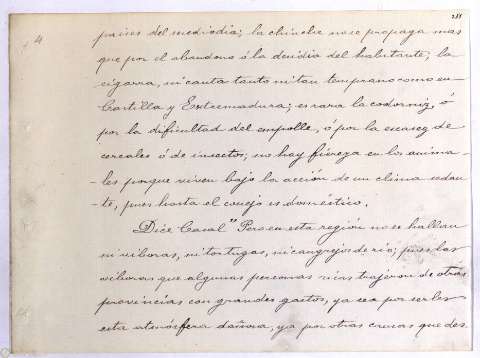 211
países del mediodia; la chinche no se propaga mas
que por el abandono ó la decidia del habitante; la
cigarra, ni canta tanto ni tan temprano como en
Castilla y Extremadura; es rara la codorniz, ó
por la dificultad del empolle, ó por la escasez de
cereales ó de insectos; no hay fiereza en los anima-
-les porque viven bajo la acción de un clima sedan-
te, pues hasta el conejo es doméstico.
Dice Casal "Pero en esta región no se hallan
ni viboras, ni tortugas, ni cangrejos de rio; pues las
viboras que algunas personas trajeron de otras
provincias con grandes gastos, ya sea por serles
esta atmósfera dañosa, ya por otras causas que des.